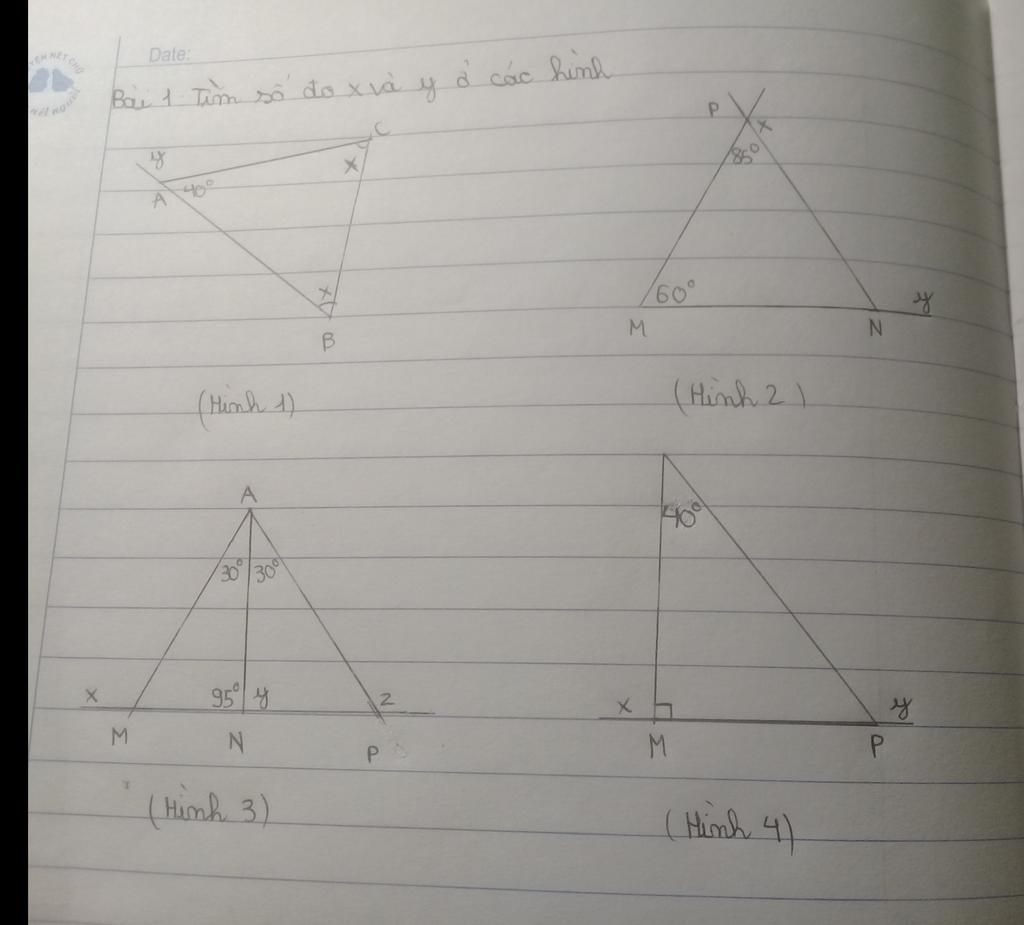 Date:
Bài 1 Tìm số đo x và y ở các hình
y
A
40°
C
x
x
B
(Hình 1)
P
x
85°
60°
M
N
y
(Hình 2)
A
30°
30°
x
95°
y
z
M
N
P
(Hình 3)
40°
x
y
M
P
(Hình 4)